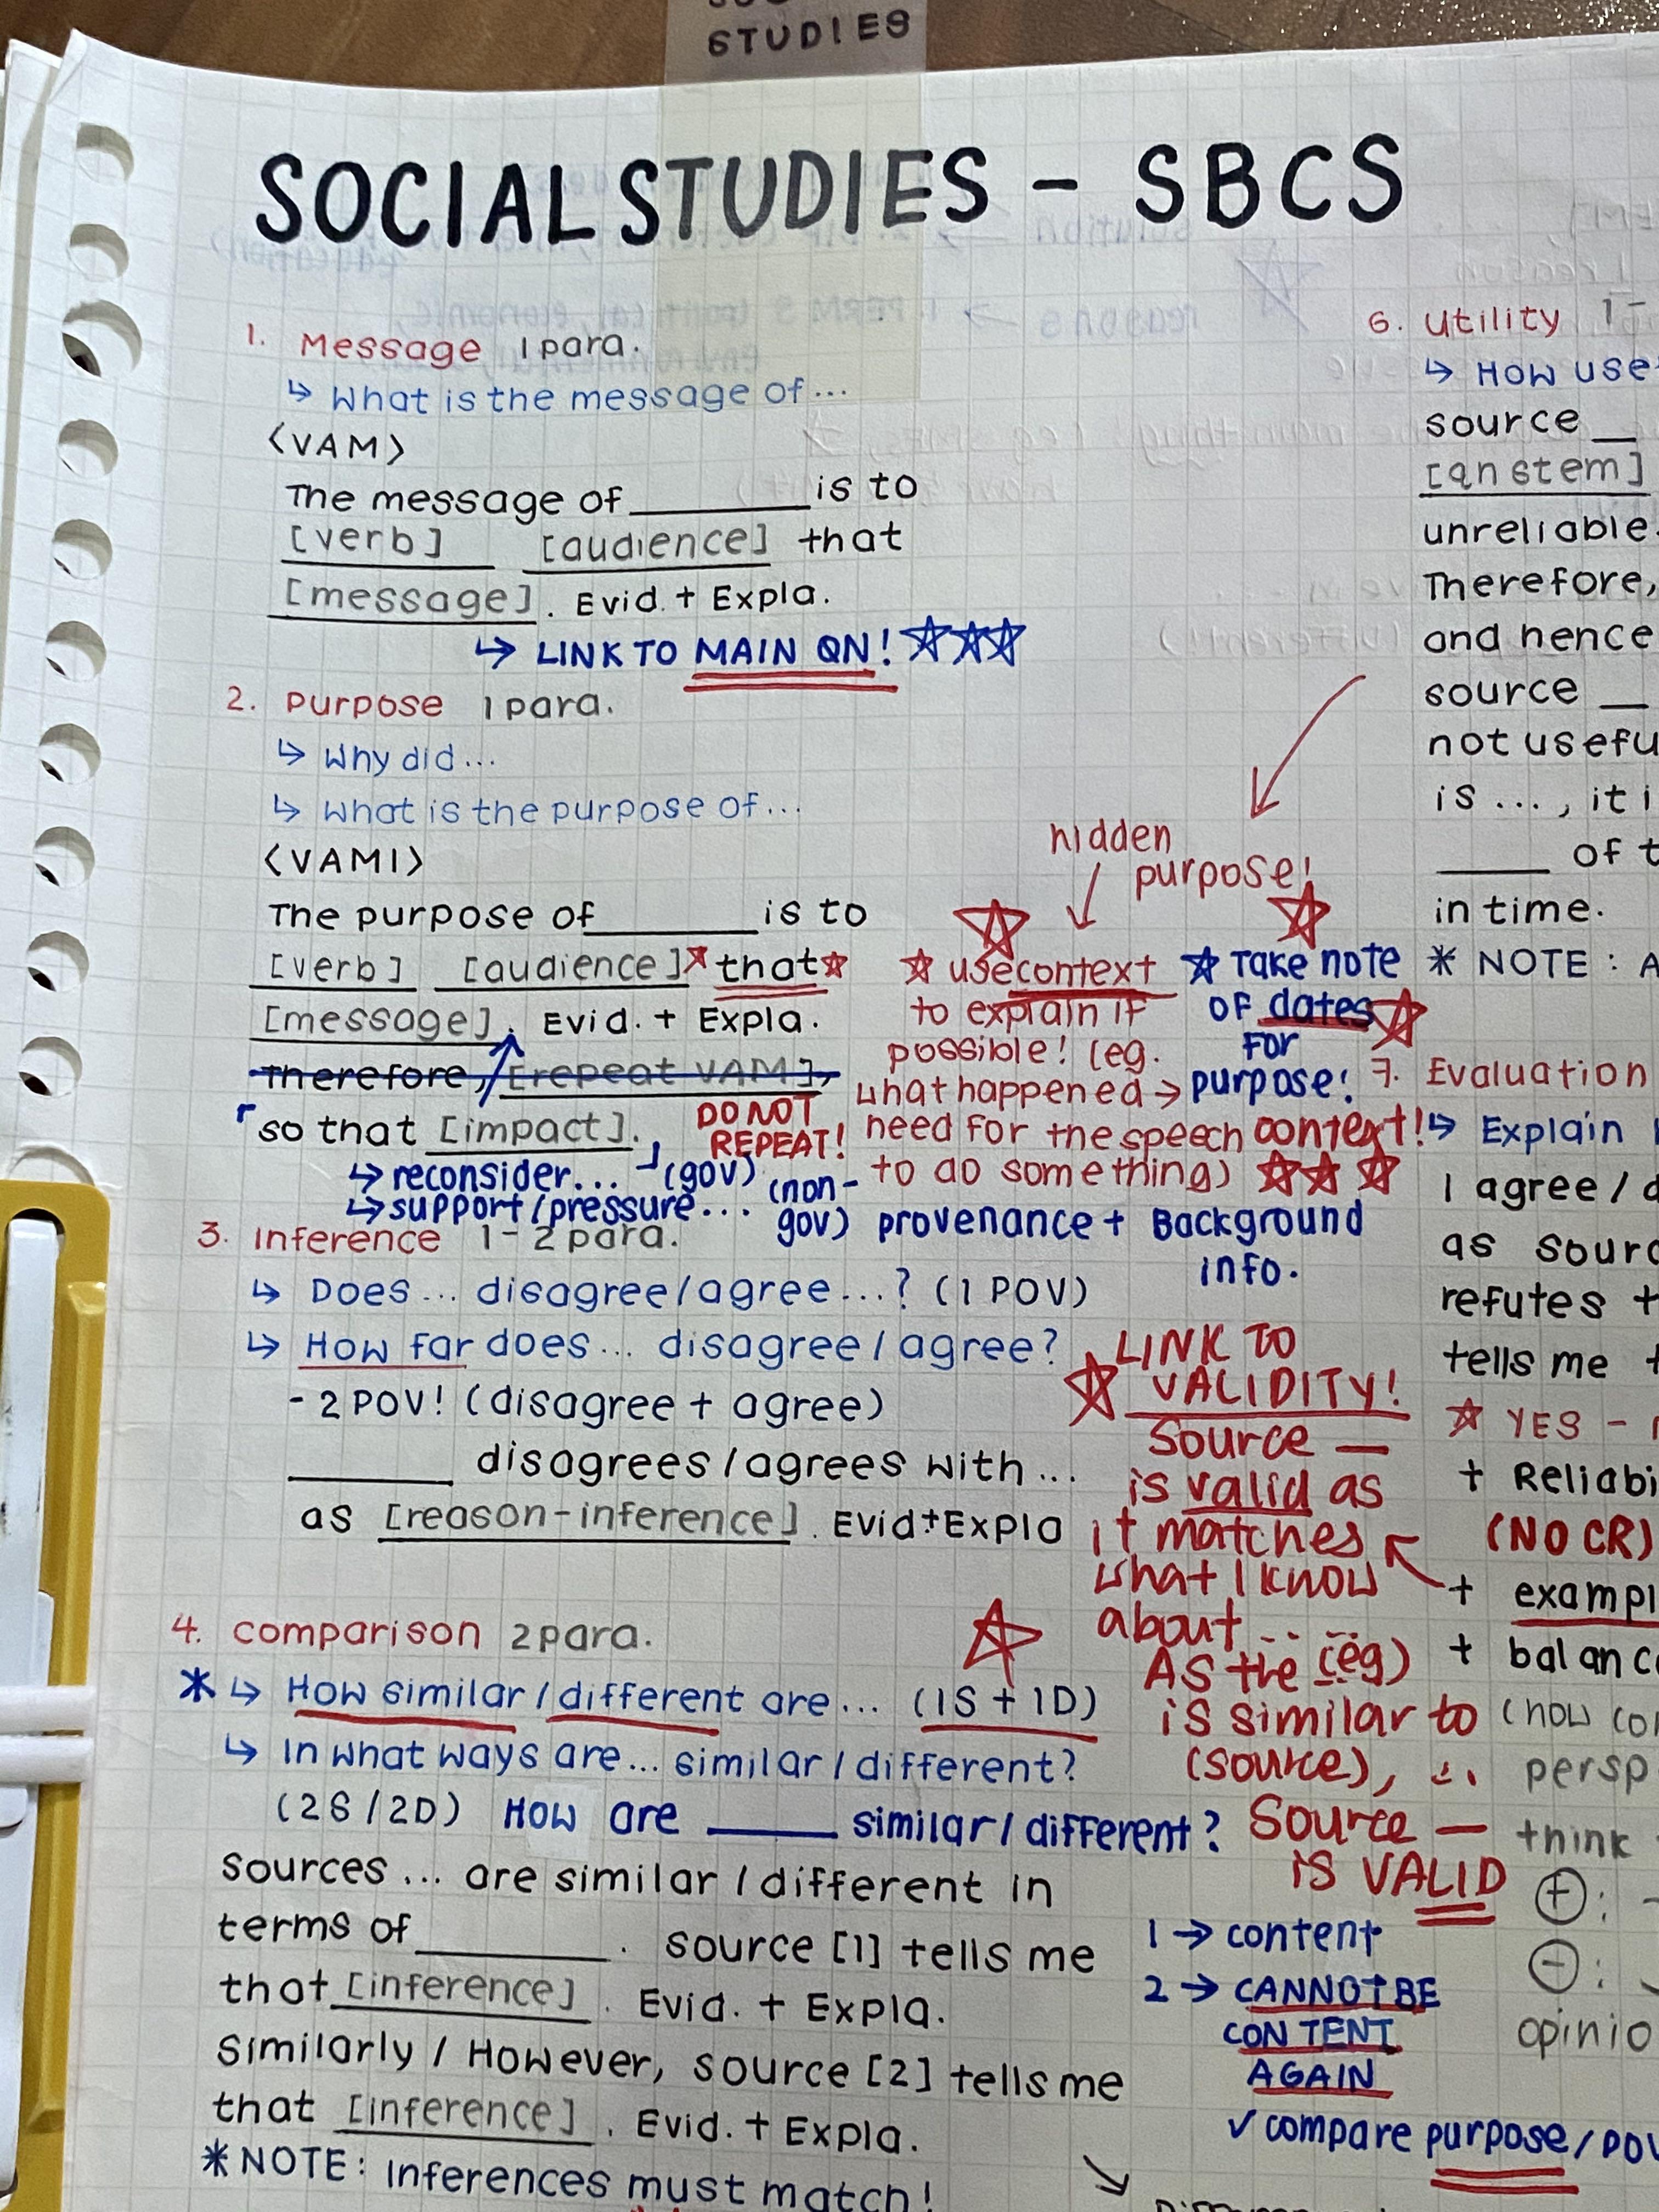 STUDIES
SOCIAL STUDIES - SBCS
1. Message 1 para.
↳ What is the message of...
<VAM>
The message of ______ is to
[verb] [audience] that
[message]. Evid. + Expla.
↳ LINK TO MAIN QN! ☆☆☆
2. Purpose 1 para.
↳ Why did...
↳ What is the purpose of...
<VAMI>
The purpose of ______ is to
[verb] [audience] that
[message]. Evid. + Expla.
Therefore, [repeat VAM],
DO NOT
REPEAT!
so that [impact].
↳ reconsider... (gov)
↳ support/pressure... (non-
gov)
hidden
purpose!
☆ use context
to explain if
possible! (eg.
what happened →
need for the speech
to do something)
☆ Take note
of dates
for
purpose!
context!
☆☆☆
provenance + Background
info.
3. Inference 1-2 para.
↳ Does... disagree/agree...? (1 POV)
↳ How far does... disagree/agree?
- 2 POV! (disagree + agree)
______ disagrees/agrees with...
as [reason-inference]. Evid+Expla
LINK TO
☆ VALIDITY!
Source —
is valid as
it matches
what I know
about...
As the (eg)
is similar to
(source), ...
Source —
is VALID
4. Comparison 2 para.
* ↳ How similar/different are... (1S + 1D)
↳ In what ways are... similar/different?
(2S/2D) How are ______ similar/different?
Sources... are similar/different in
terms of ______. Source [1] tells me
that [inference]. Evid. + Expla.
Similarly / However, source [2] tells me
that [inference]. Evid. + Expla.
*NOTE: Inferences must match!
1 → content
2 → CANNOT BE
CONTENT
AGAIN
✓ compare purpose/
6. Utility
↳ How
source __
[qn stem]
unreliable.
Therefore,
and hence
source __
not
is ..., it
______ of
in time.
* NOTE:
7. Evaluation
↳ Explain
I agree/
as
refutes
tells me
☆ YES -
+
(NO CR)
+
+
(how
think
⊕:
⊖: